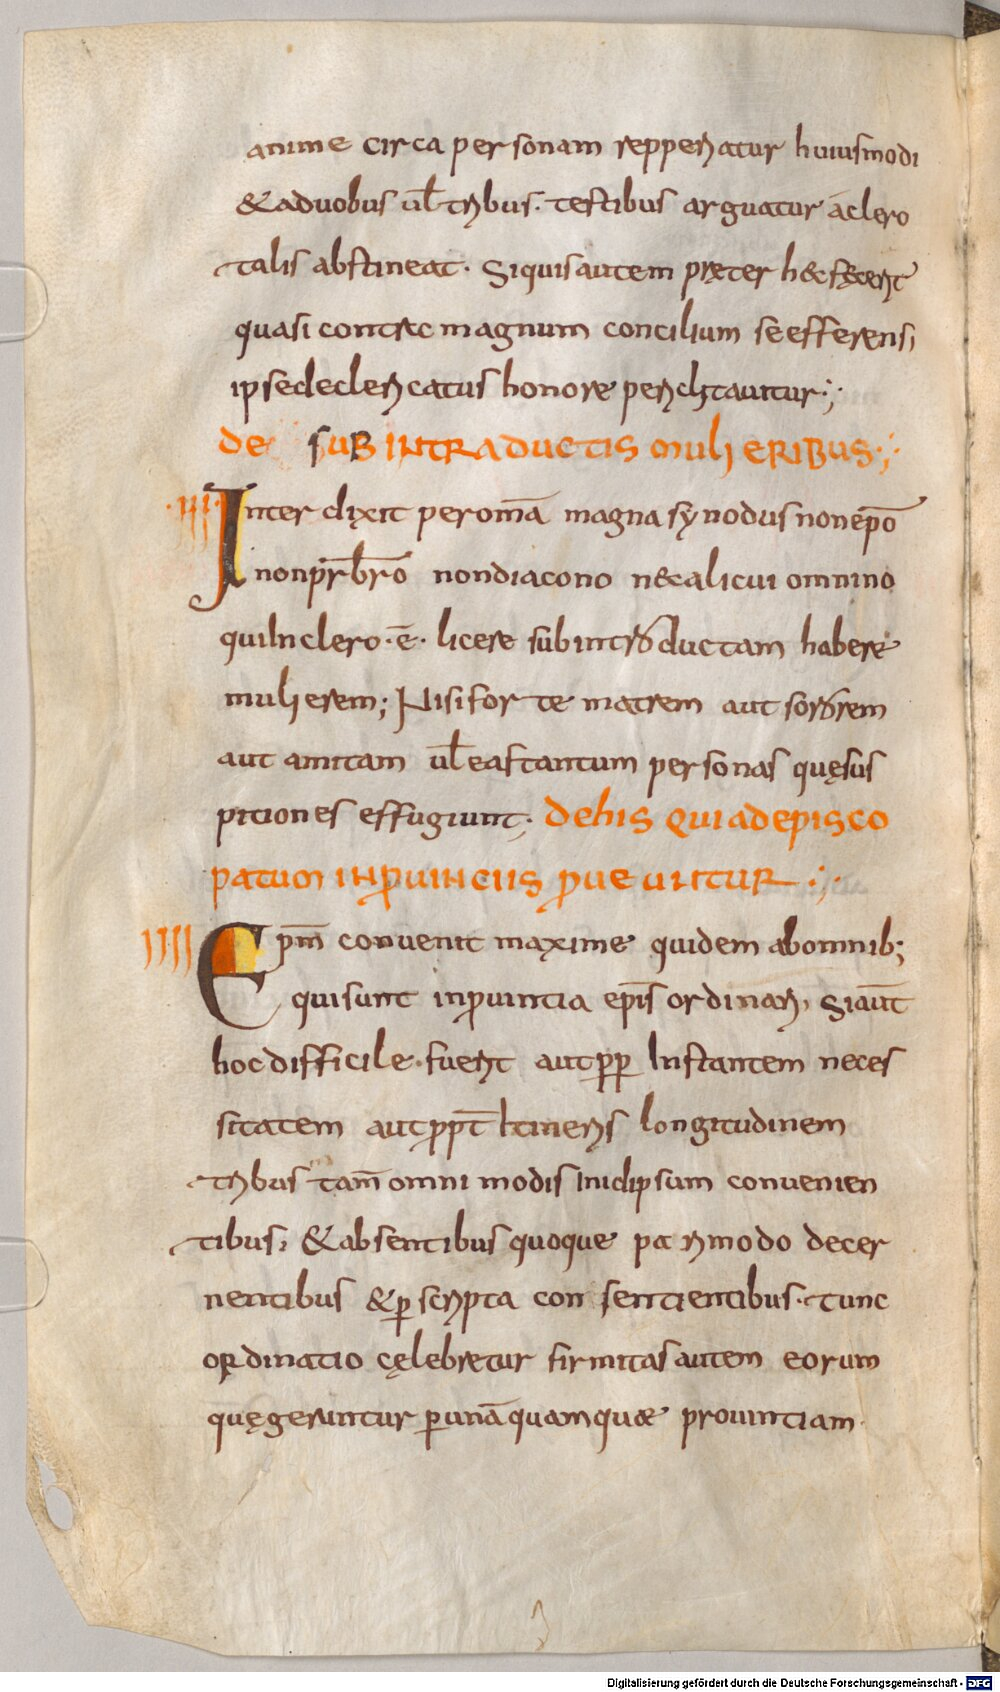 anime circa personam repperiatur huiusmodi
& aduobus ul̄ tribus· testibus arguatur aclero
talis abstineat· Siquis autem pręter h&c fecerit
quasi contrc magnum concilium se efferens,
ipse declericatus honore periclitauitur·;·
de sub intraductis mulieribus·;·
·III· Inter dixit per om̄a magna synodus non ep̄o
non pr̄b̄ro non diacono n&alicui omnino
qui In clero· ē· licere sub introductam habere
mulierem; Nisi forte matrem aut sororem
aut amitam ul̄ eas tantum personas quęsus
pitiones effugiunt· de his qui ad episco
patum in ꝓuinciis ꝓueuntur·;·
IIII Ep̄m conuenit maxime quidem ab omnib;
qui sunt in ꝓuintia ep̄is ordinari, Siaūt
hoc difficile· fuerit aut ꝓp Instantem neces
sitatem aut ꝓpt̄ Itineris longitudinem
tribus tam̄ omni modis In idipsum conuenien
tibus, & absentibus quoque pari modo decer
nentibus & ꝑ scripta consentientibus· tunc
ordinatio cęlebretur firmitas autem eorum
quę geruntur ꝑ unā quamquae prouintiam·